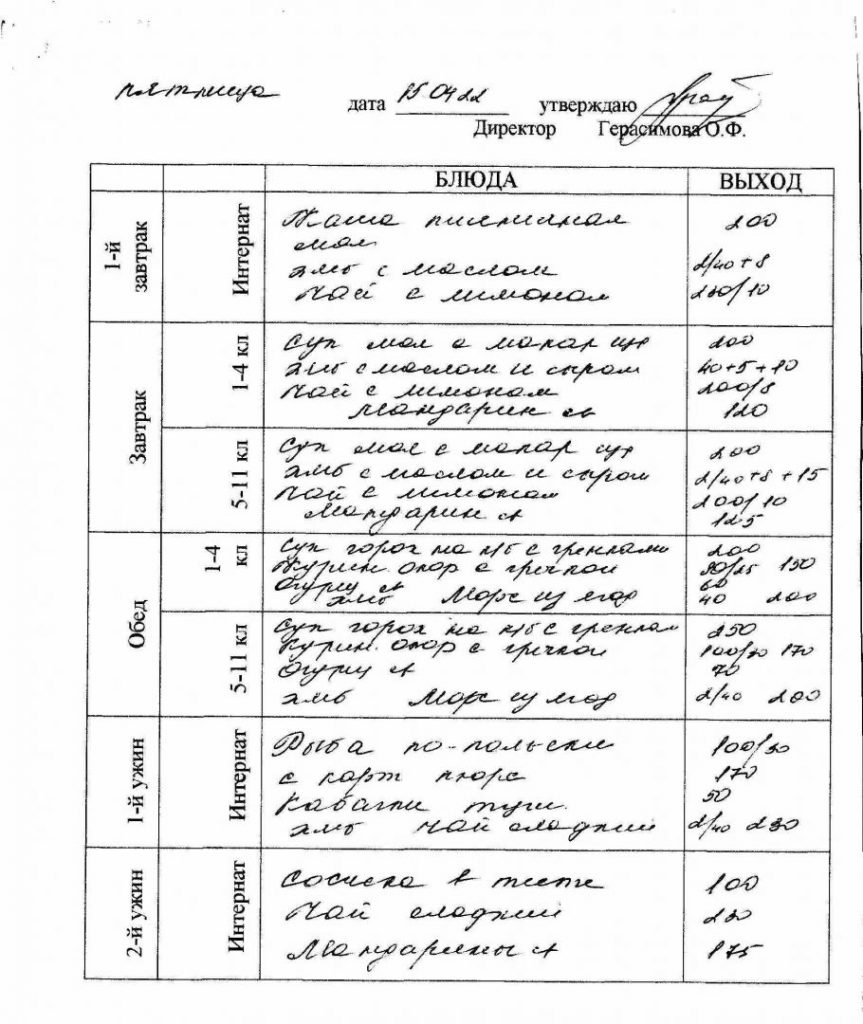 пятница
дата 15 04 22 утверждаю
Директор Герасимова О.Ф.
БЛЮДА ВЫХОД
1-й завтрак
Интернат
Каша пшеничная 200
мол
хлеб с маслом 2/40+8
Чай с лимоном 230/10
Завтрак
1-4 кл
Суп мол с макар изд 200
хлеб с маслом и сыром 40+5+10
Чай с лимоном 200/8
Мандарин св 120
5-11 кл
Суп мол с макар изд 200
хлеб с маслом и сыром 2/40+8+15
Чай с лимоном 200/10
Мандарин св 125
Обед
1-4 кл
Суп горох на к/б с гренками 200
Курин. окор с гречкой 90/25 150
Огурец св 60
хлеб Морс из ягод 40 200
5-11 кл
Суп горох на к/б с гренкам 250
Курин. окор с гречкой 100/30 170
Огурец св 70
хлеб Морс из ягод 2/40 200
1-й ужин
Интернат
Рыба по-польски 100/30
с карт пюре 170
Кабачки туш. 50
хлеб чай сладкий 2/40 230
2-й ужин
Интернат
Сосиска в тесте 100
Чай сладкий 230
Мандарины св 175